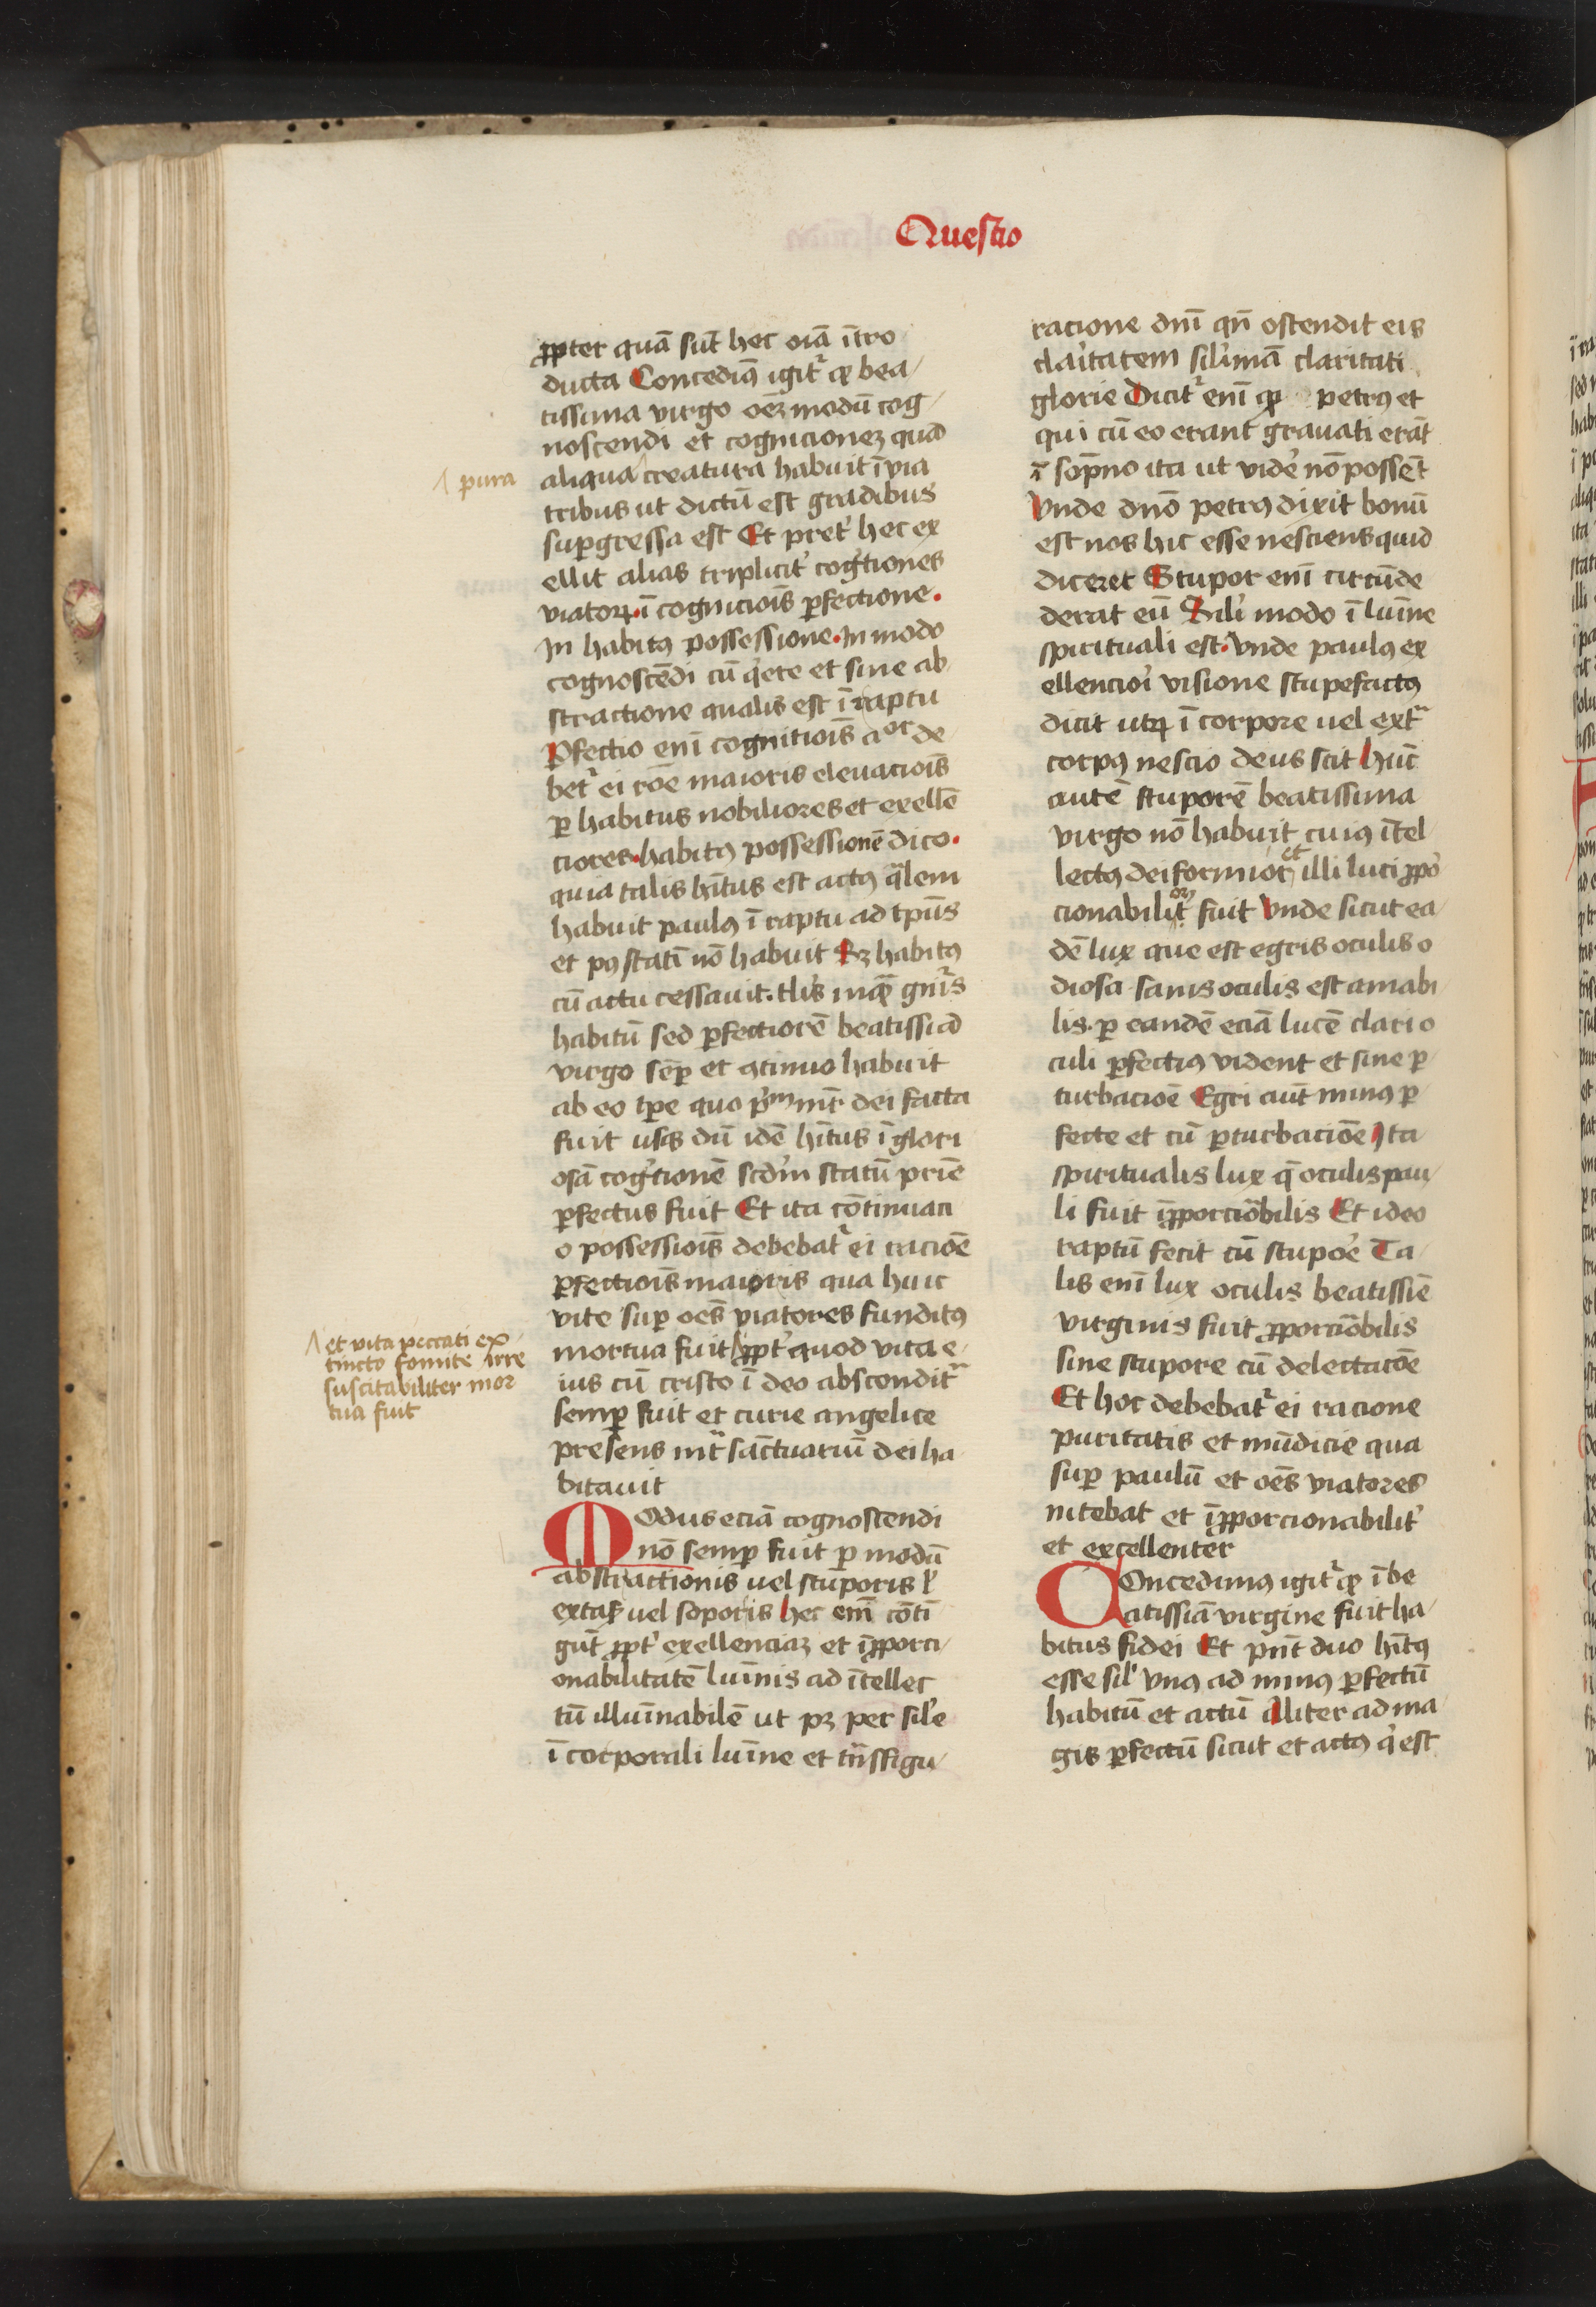 Questio
ꝓpter quā sūt hec oīa ītro
ducta Concedimꝰ igit᷑ ꝙ bea/
tissima virgo oēꝫ modū cog/
noscendi et cognicioneꝫ quā
aliqua creatura habuit ī via
/ pura
tribus ut dictū est gradibus
suꝑgressa est Et pret᾽ hec ex
ellit alias triplicit᾽ cog᾽tiones
viatoꝝ · ī cognicioīs ꝑfectione ·
In habitꝰ possessione · In modo
cognoscēdi cū q᾽ete et sine ab
stractione qualis est ī raptu
Ꝑfectio enī cognitioīs de/
bet᷑ ei rōe maioris elevacioīs
ꝑ habitus nobiliores et exellē
ciores · habitꝰ possessionē dico ·
quia talis hītus est actꝰ q̄lem
habuit paulꝰ ī raptu ad tp̄us
et pꝰ statī nō habuit Sꝫ habitꝰ
cū actu cessavit · tl᾽is inq̄ gn᾽is
habitū sed ꝑfectiorē beatissīa
virgo sēꝑ et ꝯtinuo habuit
ab eo tꝑe quo p᾽m mr̄ dei facta
fuit usqꝫ dū idē hītus ī glori
osā cog᾽tionē scd᾽m statū prīe
ꝑfectus fuit Et ita cōtinuaci
o possessioīs debebat᷑ ei raciōe
ꝑfectioīs maioris qua huic
vite suꝑ oēs viatores funditꝰ
mortua fuit / ꝓpt᾽ quod vita e/
/ et vita peccati ex
tincto fomite irre
suscitabiliter mor
tua fuit
ius cū cristo ī deo abscondit᷑
semꝑ fuit et curie angelice
presens int᷑ sāctuariū dei ha
bitavit
Modus eciā cognoscendi
nō semꝑ fuit ꝑ modū
abstractionis vel stuporis ł
extaꝭ vel soporis hec enī cōti
gūt ꝓpt᾽ exellenciaꝫ et īꝓporci/
onabilitatē luīnis ad ītellec
tū illuīnabilē ut pꝫ per sil᾽e
ī corporali luīne et trāsfigu/
racione dnī qn̄ ostendit eis
clar᾽itatem sil᾽imā claritati
glorie Dicit᷑ enī ꝙ petrꝰ et
qui cū eo erant gravati erāt
ī sopno ita ut vid᾽e nō possēt
Unde dn̄o petrꝰ dixit bonū
est nos hic esse nesciens quid
diceret Stupor enī circūde
derat eū Sil᾽i modo ī luīne
spirituali est · Unde paulꝰ ex
ellencior᾽i visione stupefactꝰ
dicit utrꝫ ī corpore vel ext᷑
corpꝰ nescio deus scit Hūc
autē stuporē beatissima
virgo nō habuit cuiꝰ ītel
lectꝰ deiformior et illi luci ꝓpo᾽
cionabilior fuit Unde sicut ea/
dē lux que est egris oculis o
diosa sanis oculis est amabi
lis · ꝑ eandē eciā lucē clari o
culi ꝑfectiꝰ vident et sine ꝑ
turbacioē Egri aūt minꝰ ꝑ/
fecte et cū ꝑturbaciōe Ita
spiritualis lux q̄ oculis pau/
li fuit īꝓporciōbilis Et ideo
raptū fecit cū stupo᾽e Ta/
lis enī lux oculis beatissīe
virginis fuit ꝓporciōbilis
sine stupore cū delectacōe
Et hoc debebat᷑ ei racione
puritatis et mūdicie qua
suꝑ paulū et oēs viatores
nitebat et īꝓporcionabilit᾽
et excellenter
Concedimꝰ igit᷑ ꝙ ī be
atissīa virgine fuit ha/
bitus fidei Et pn̄t duo hītꝰ
esse sil᾽ vnꝰ ad minꝰ ꝑfectū
habitū et actū Aliter ad ma
gis ꝑfectū sicut et actꝰ q᾽ est